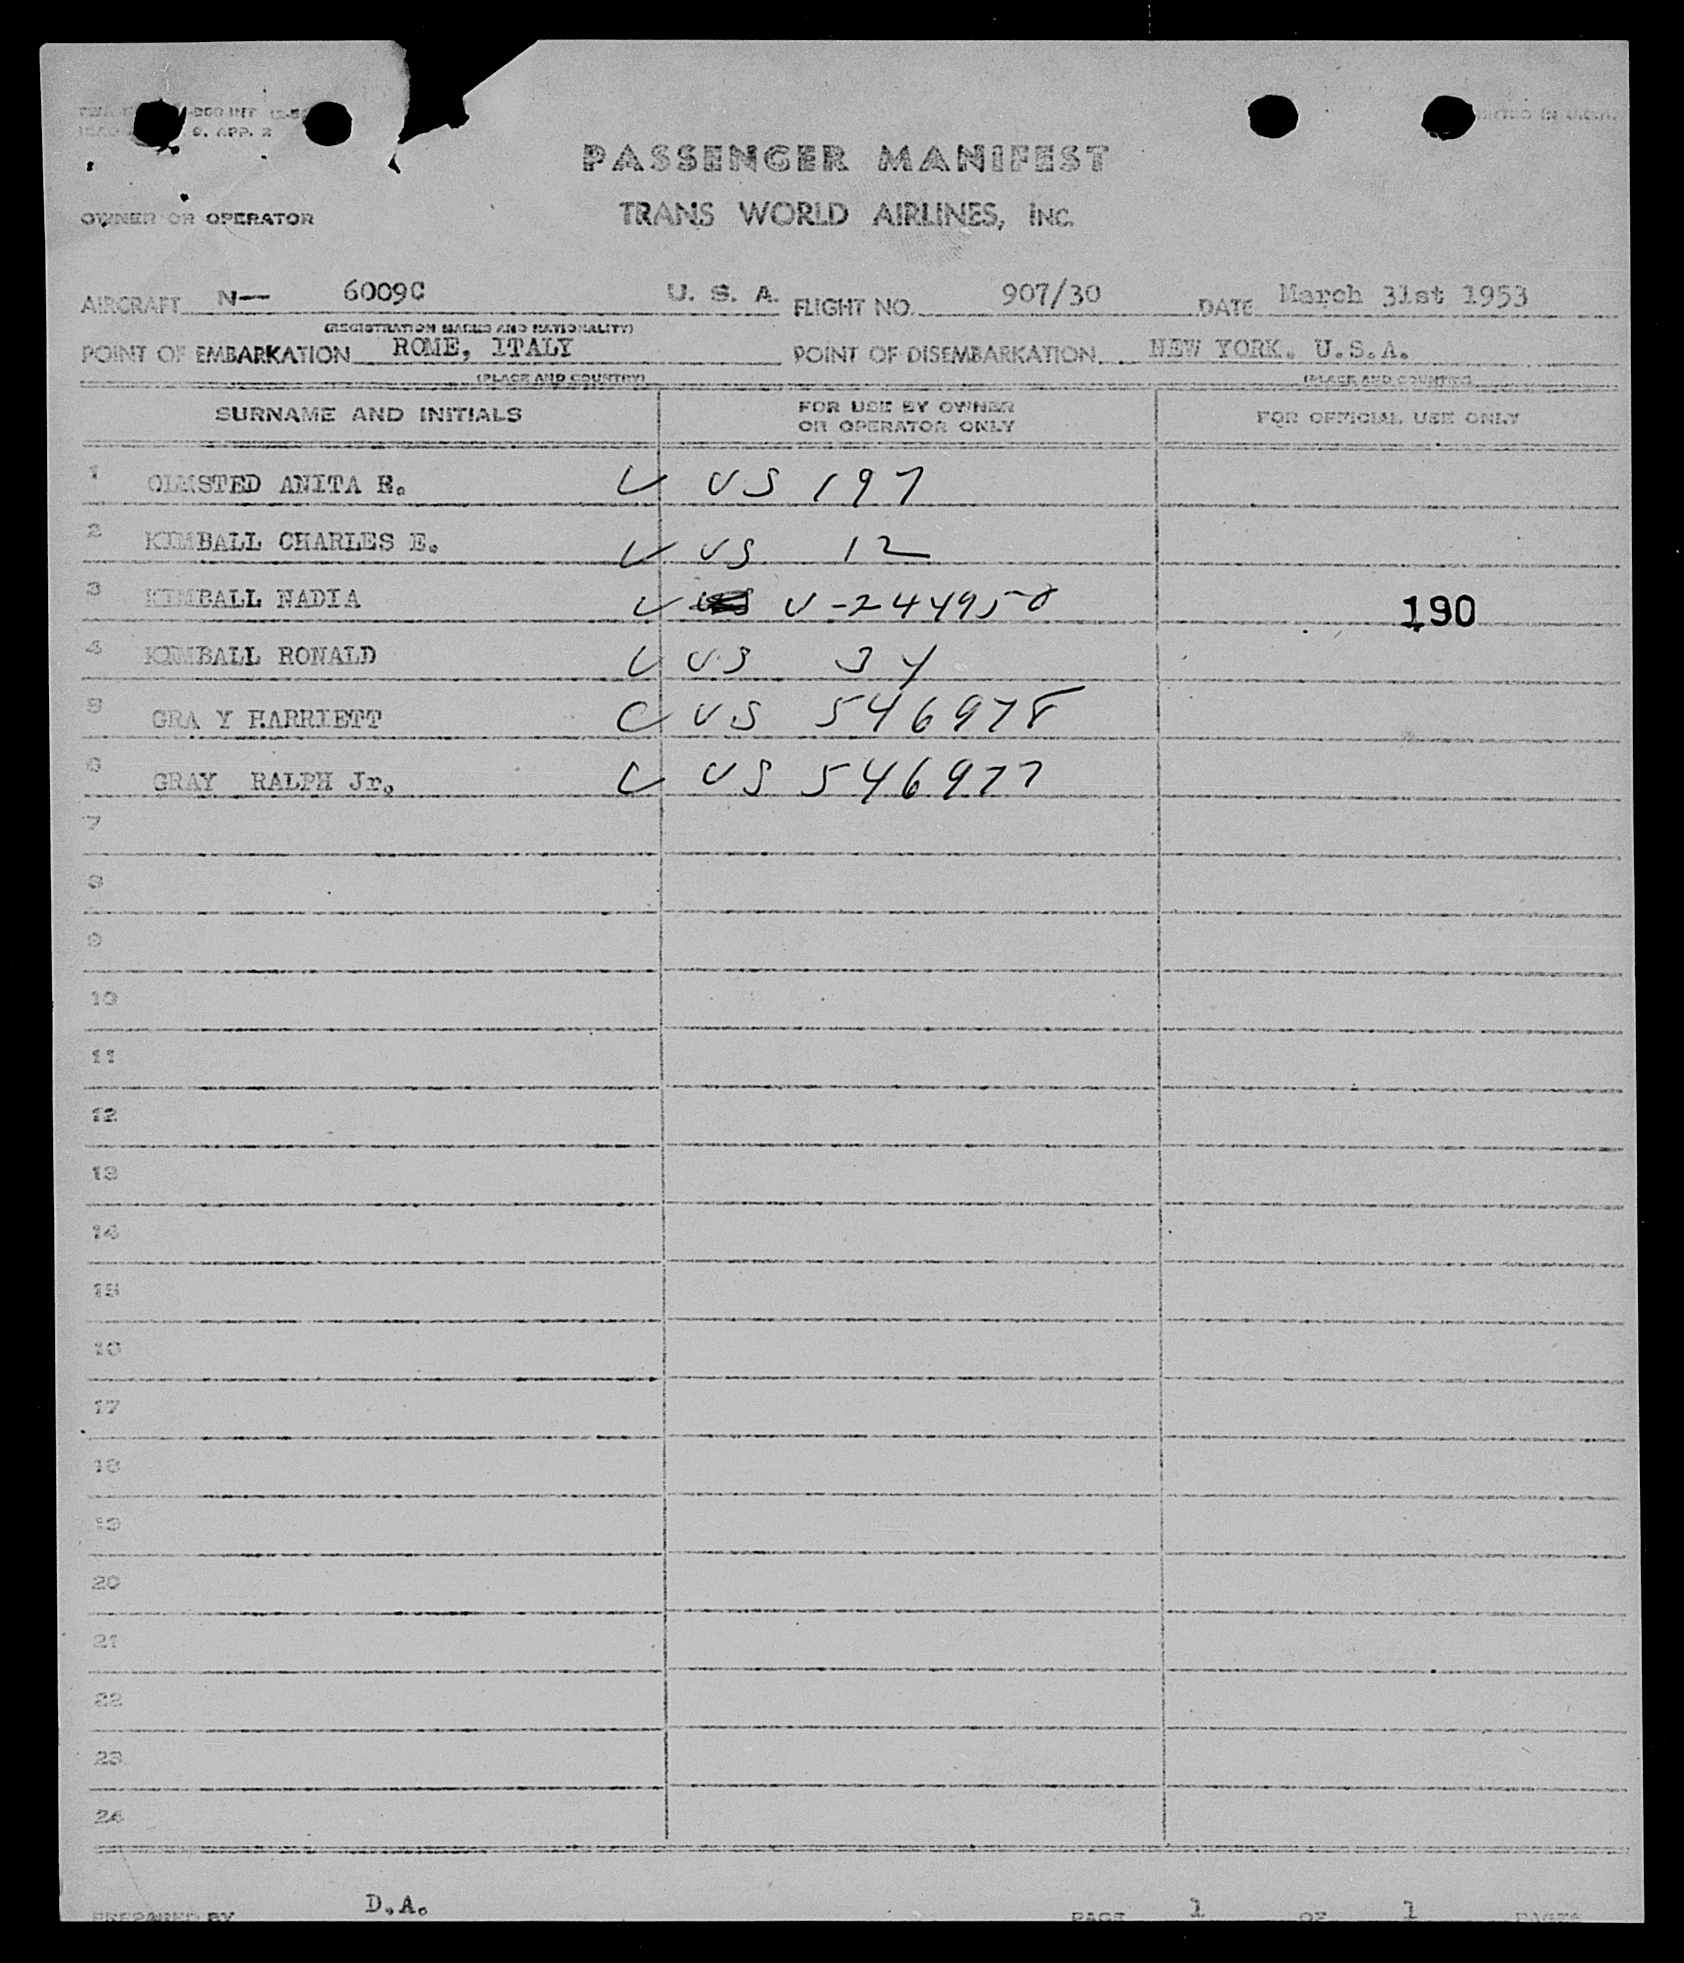 APP. 2
PASSENGER MANIFEST
OWNER OR OPERATOR
TRANS WORLD AIRLINES, INC.
AIRCRAFT N— 6009C U. S. A. FLIGHT NO. 907/30 DATE March 31st 1953
(REGISTRATION MARKS AND NATIONALITY)
POINT OF EMBARKATION ROME, ITALY POINT OF DISEMBARKATION NEW YORK. U.S.A.
(PLACE AND COUNTRY) (PLACE AND COUNTRY)
SURNAME AND INITIALS FOR USE BY OWNER OR OPERATOR ONLY FOR OFFICIAL USE ONLY
1 OLMSTED ANITA R. US 197
2 KIMBALL CHARLES E. US 12
3 KIMBALL NADIA V-244950 190
4 KIMBALL RONALD US 34
5 GRA Y HARRIETT US 546978
6 GRAY RALPH Jr. US 546977
7
8
9
10
11
12
13
14
15
16
17
18
19
20
21
22
23
24
PREPARED BY D.A. PAGE 1 OF 1 PAGES